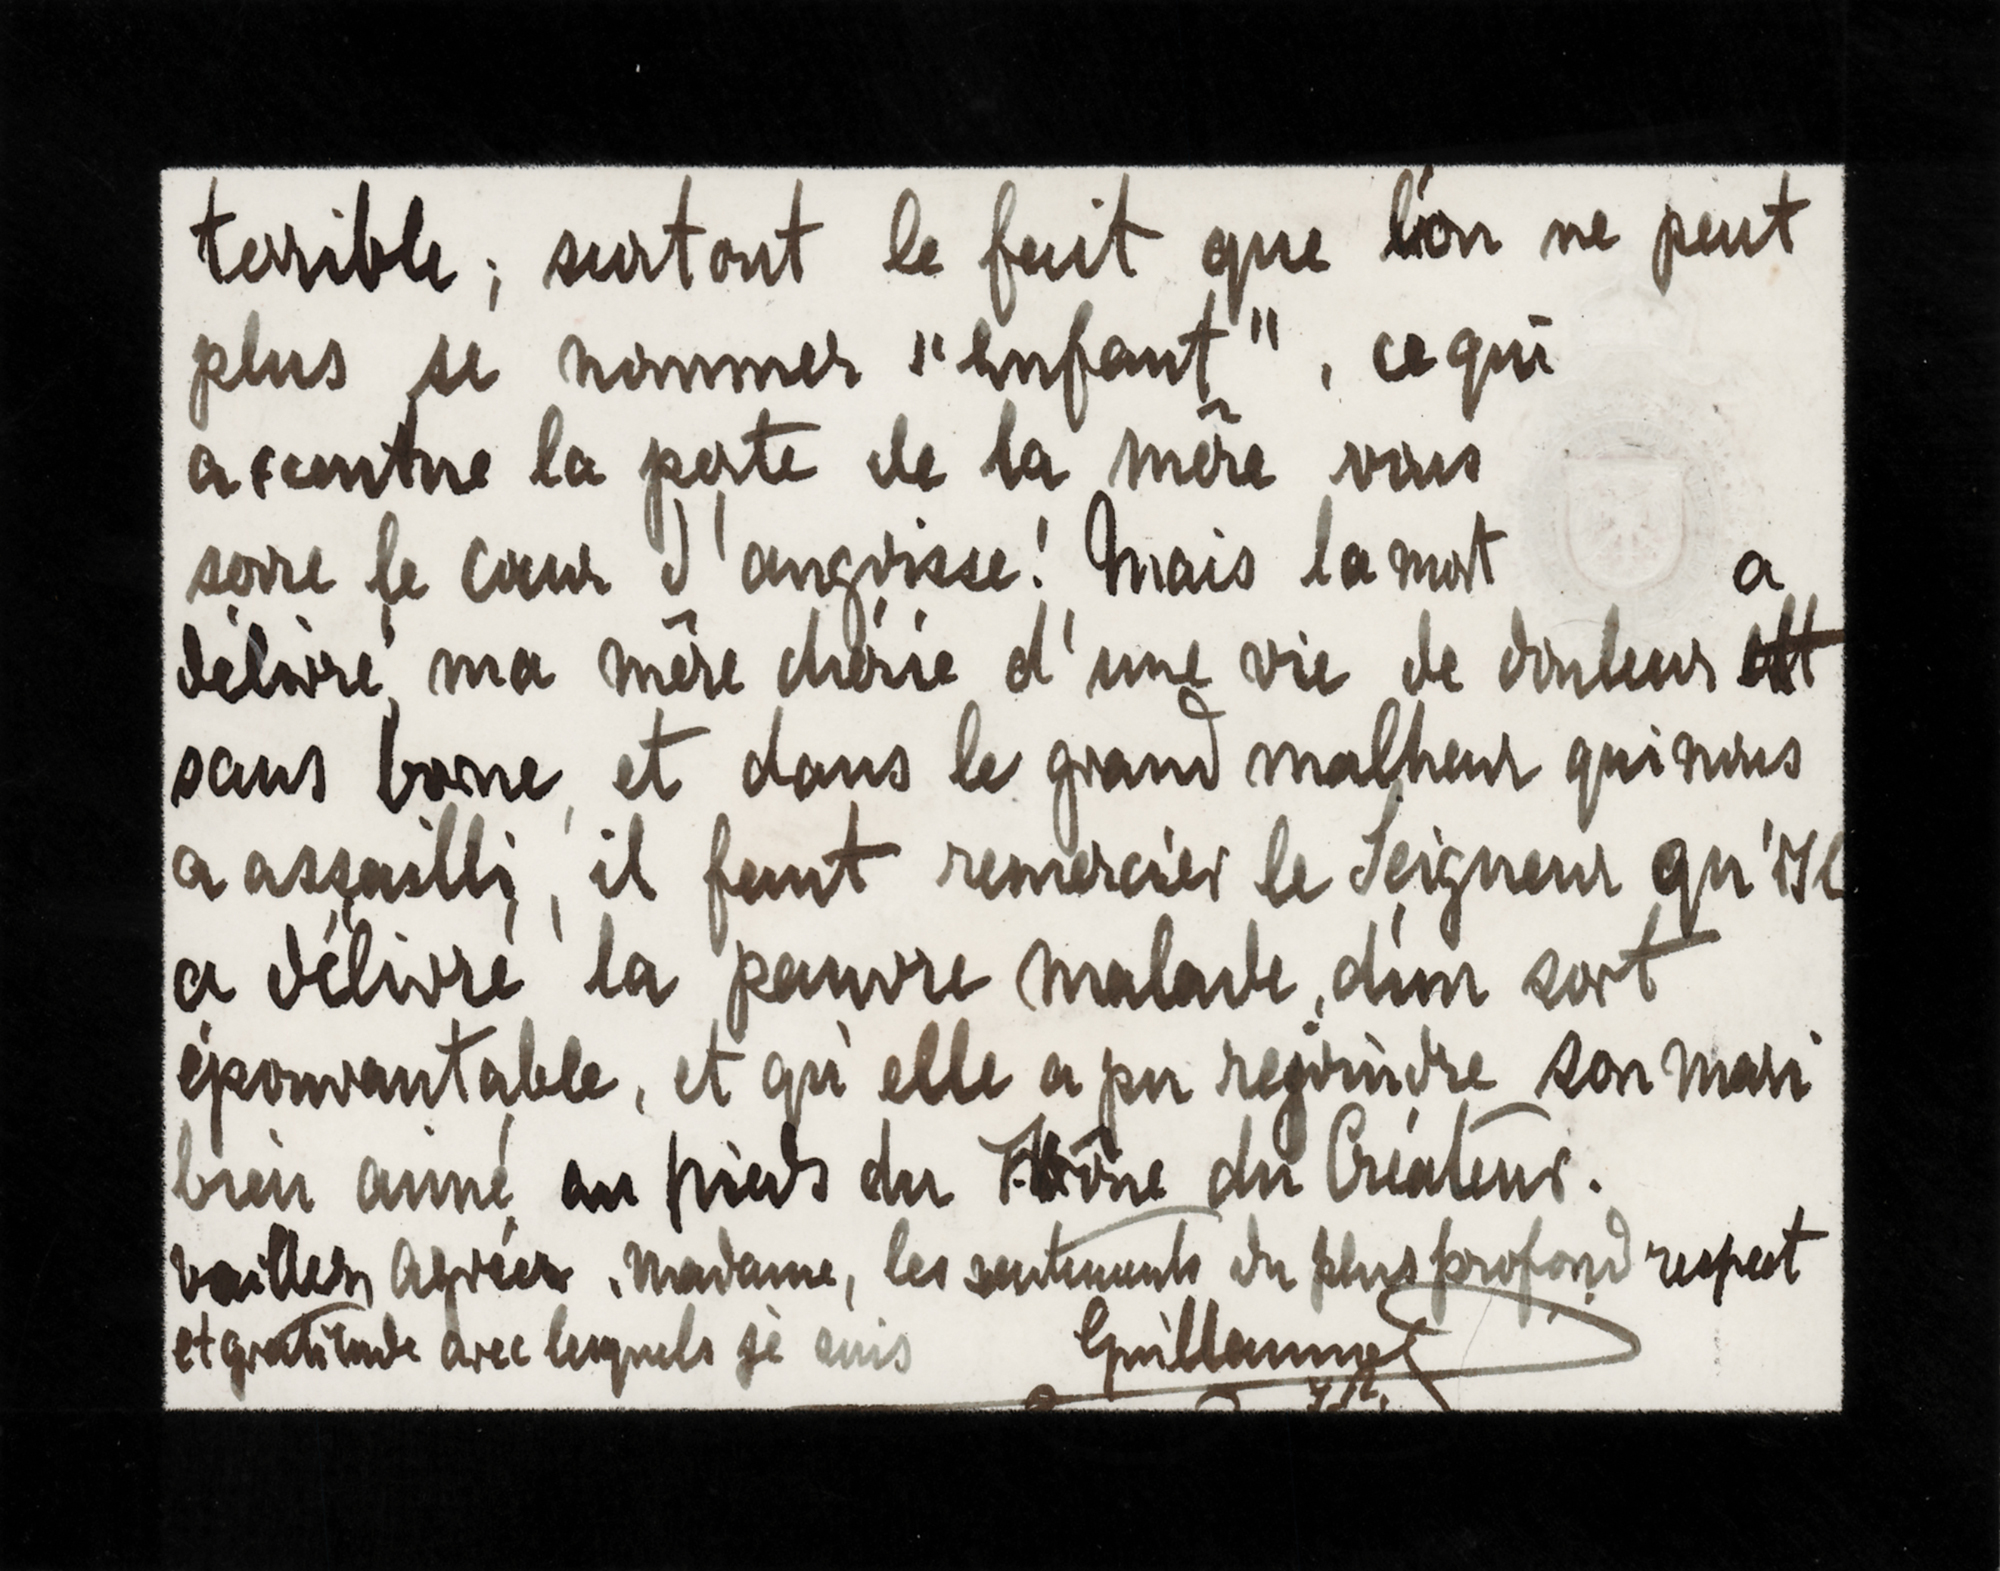 terrible; surtout le fait que l'on ne peut
plus se nommer "enfant", ce qui
accentue la perte de la mère vous
serre le cœur d'angoisse! Mais la mort a
délivré, ma mère chérie d'une vie de douleur
sans borne, et dans le grand malheur qui nous
a assailli, il faut remercier le Seigneur qu'Il
a délivré la pauvre malade, d'un sort
épouvantable, et qu'elle a pu rejoindre son mari
bien aimé au pieds du Thrône du Créateur.
Veuillez agréer, Madame, les sentiments du plus profond respect
et gratitude avec lesquels je suis Guillaume